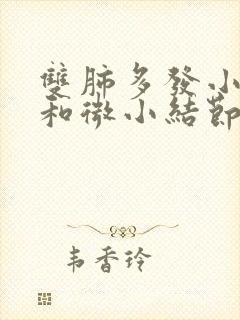 雙肺多發小
和微小結節
韦香玲